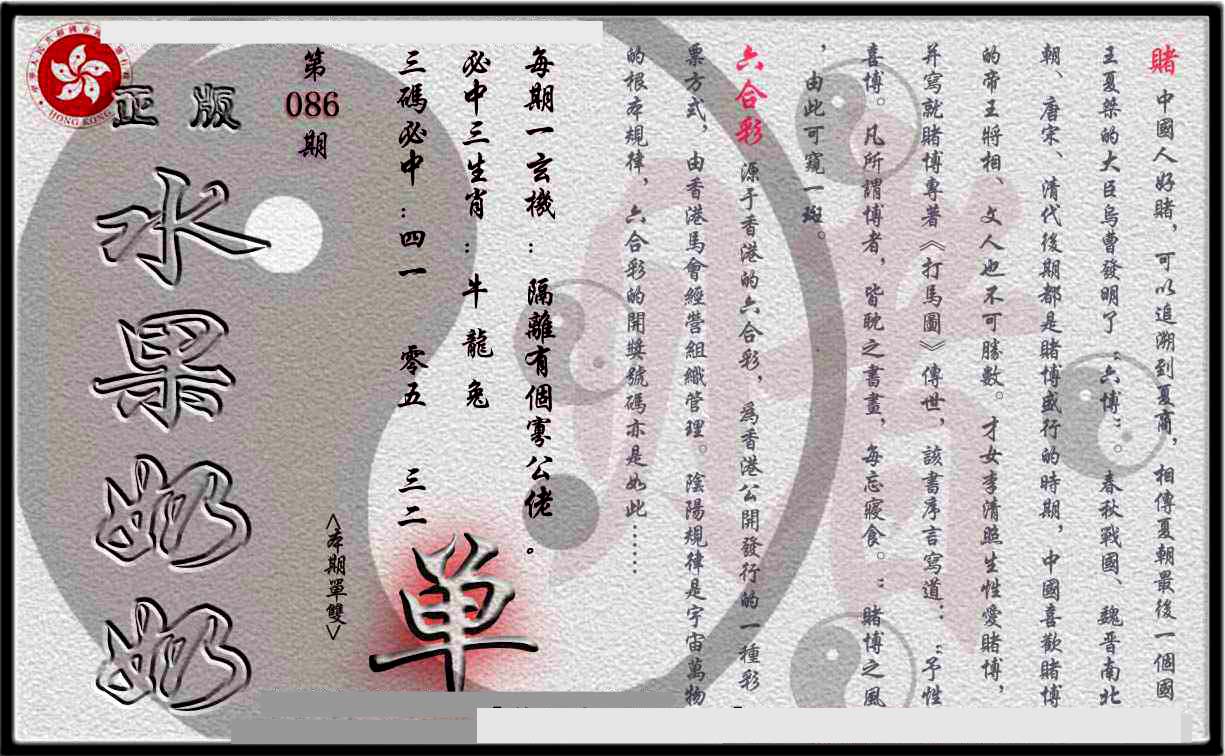 賭 中國人好賭，可以追溯到夏商，相傳夏朝最後一個國
王夏桀的大臣烏曹發明了“六博”。春秋戰國、魏晋南北
朝、唐宋、清代後期都是賭博盛行的時期，中國喜歡賭博
的帝王將相、文人也不可勝數。才女李清照生性愛賭博，
并寫就賭博專著《打馬圖》傳世，該書序言寫道：“予性
喜博。凡所謂博者，皆耽之書畫，每忘寢食。”賭博之風
，由此可窺一斑。
六合彩 源于香港的六合彩，爲香港公開發行的一種彩
票方式，由香港馬會經營組織管理。陰陽規律是宇宙萬物
的根本規律，六合彩的開獎號碼亦是如此……
每期一玄機：隔離有個寡公佬。
必中三生肖：牛龍兔
三碼必中：四一 零五 三二
单
<本期單雙>
第
086
期
正版
水果奶奶
HONG KONG